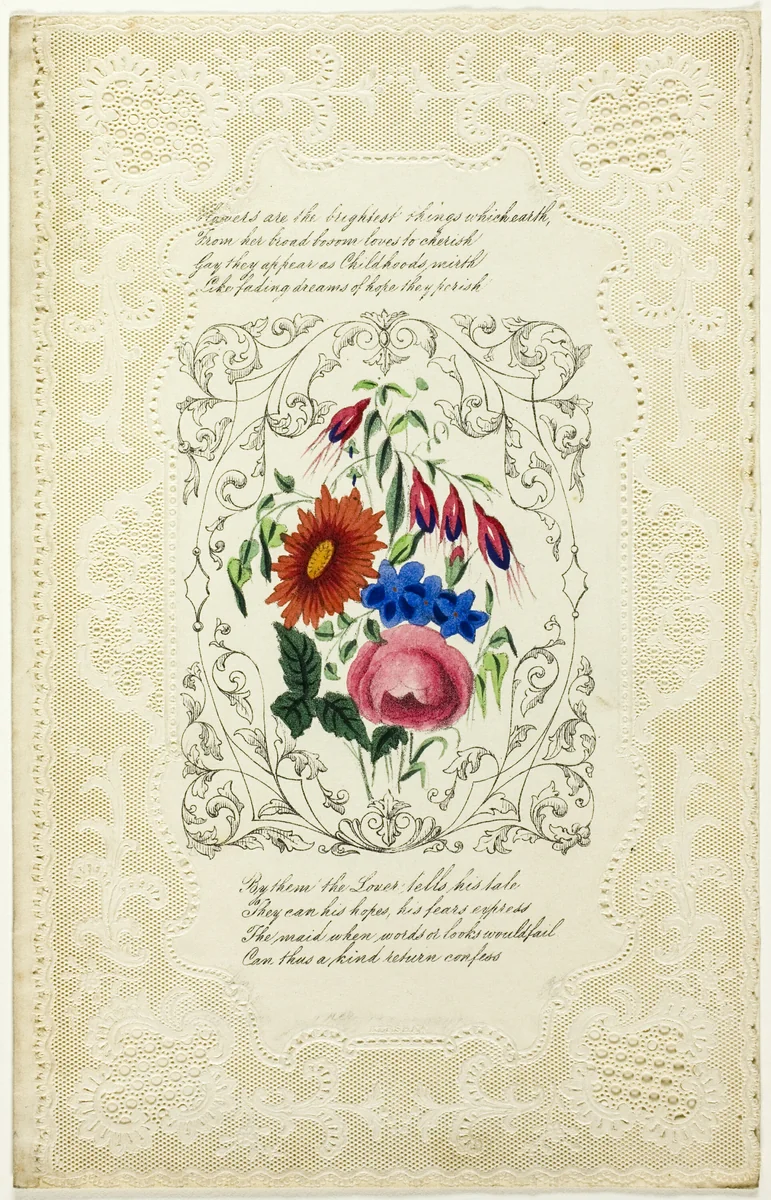 Flowers are the brightest things which earth,
From her broad bosom loves to cherish
Gay they appear as Childhoods mirth
Like fading dreams of hope they perish
By them the Lover tells his tale
They can his hopes, his fears express
The maid when words or looks would fail
Can thus a kind return confess